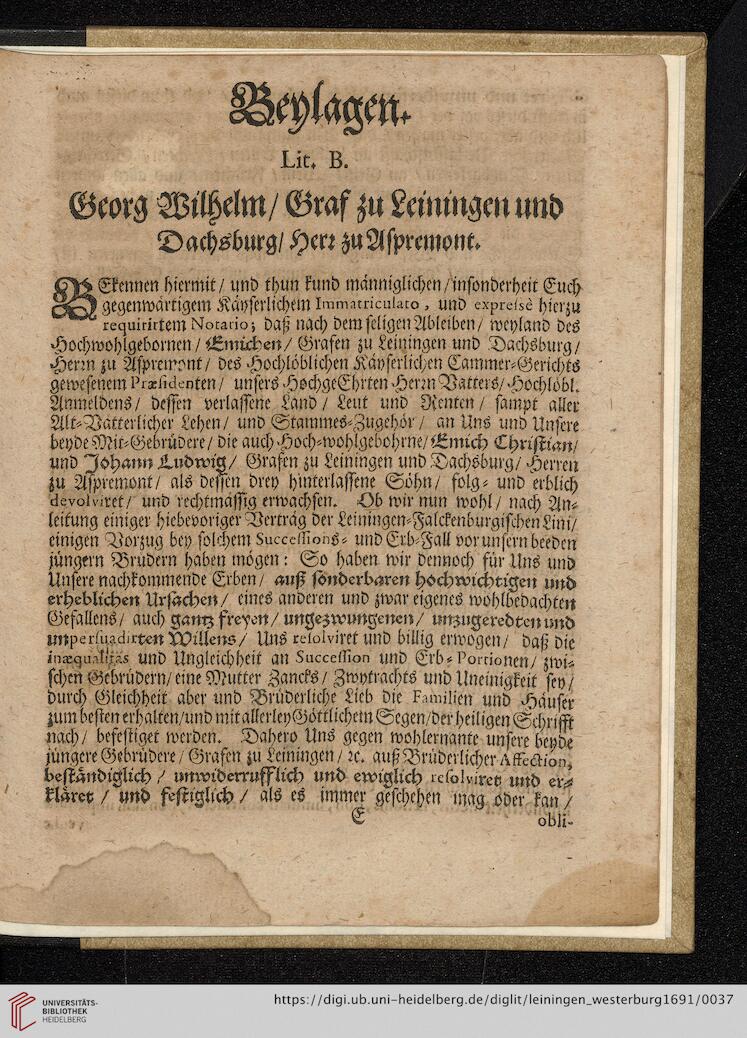 Beylagen.
Lit. B.
Georg Wilhelm/ Graf zu Leiningen und
Dachsburg/ Herꝛ zu Aspremont.
BEkennen hiermit/ und thun kund männiglichen/ insonderheit Euch
gegenwärtigem Käyserlichem Immatriculato, und expresse hierzu
requirirtem Notario; daß nach dem seligen Ableiben/ weyland des
Hochwohlgebornen/ Emichen/ Grafen zu Leiningen und Dachsburg/
Herꝛn zu Aspremont/ des Hochlöblichen Käyserlichen Cammer-Gerichts
gewesenem Præsidenten/ unsers HochgeEhrten Herꝛn Vatters/ Hochlöbl.
Anmeldens/ dessen verlassene Land/ Leut und Renten/ sampt aller
Alt-Vätterlicher Lehen/ und Stammes-Zugehör/ an Uns und Unsere
beyde Mit-Gebrüdere/ die auch Hoch-wohlgebohrne/ Emich Christian/
und Johann Ludwig/ Grafen zu Leiningen und Dachsburg/ Herren
zu Aspremont/ als dessen drey hinterlassene Söhn/ folg- und erblich
devolviret/ und rechtmässig erwachsen. Ob wir nun wohl/ nach An-
leitung einiger hiebevoriger Verträg der Leiningen-Falckenburgischen Lini/
einigen Vorzug bey solchem Successions- und Erb-Fall vor unsern beeden
jüngern Brüdern haben mögen: So haben wir dennoch für Uns und
Unsere nachkommende Erben/ auß sonderbaren hochwichtigen und
erheblichen Ursachen/ eines anderen und zwar eigenes wohlbedachten
Gefallens/ auch gantz freyen/ ungezwungenen/ unzugeredten und
unpersuadirten Willens/ Uns resolviret und billig erwogen/ daß die
inæqualitas und Ungleichheit an Succession und Erb-Portionen/ zwi-
schen Gebrüdern/ eine Mutter Zancks/ Zwytrachts und Uneinigkeit sey/
durch Gleichheit aber und Brüderliche Lieb die Familien und Häuser
zum besten erhalten/ und mit allerley Göttlichem Segen/ der heiligen Schrifft
nach/ befestiget werden. Dahero Uns gegen wohlernante unsere beyde
jüngere Gebrüdere/ Grafen zu Leiningen/ ꝛc. auß Brüderlicher Affection,
beständiglich/ unwiderrufflich und ewiglich resolviret und er-
kläret/ und festiglich/ als es immer geschehen mag oder kan/
E obli-
UNIVERSITÄTS-
BIBLIOTHEK
HEIDELBERG
https://digi.ub.uni-heidelberg.de/diglit/leiningen_westerburg1691/0037